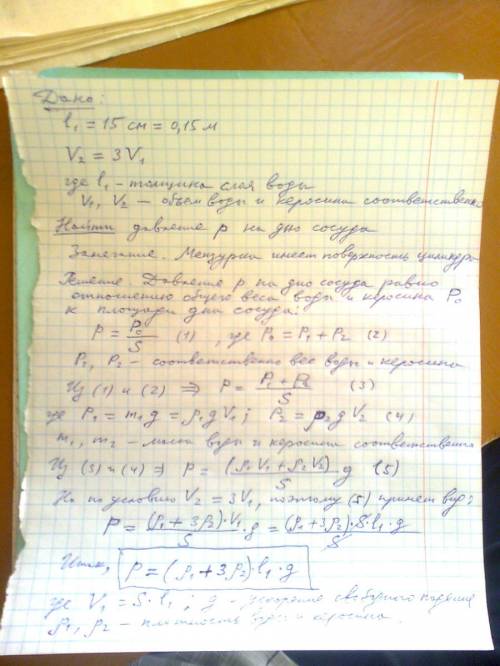 Дано:
l₁ = 15 см = 0,15 м
V₂ = 3V₁
где l₁ - толщина слоя воды
V₁, V₂ - объем воды и керосина соответственно
Найти давление p на дно сосуда
Замечание. Мензурка имеет поверхность цилиндра
Решение. Давление p на дно сосуда равно
отношению общего веса воды и керосина P₀
к площади дна сосуда:
p = P₀/S (1), где P₀ = P₁ + P₂ (2)
P₁, P₂ - соответственно вес воды и керосина
Из (1) и (2) ⇒ p = (P₁ + P₂)/S (3)
где P₁ = m₁g = ρ₁gV₁; P₂ = ρ₂gV₂ (4)
m₁, m₂ - масса воды и керосина соответственно
Из (3) и (4) ⇒ p = (ρ₁V₁ + ρ₂V₂)/S g (5)
Но по условию V₂ = 3V₁, поэтому (5) примет вид:
p = (ρ₁ + 3ρ₂)·V₁/S ·g = (ρ₁ + 3ρ₂)·S·l₁·g/S
Итак, p = (ρ₁ + 3ρ₂)·l₁·g
где V₁ = S·l₁; g - ускорение свободного падения
ρ₁, ρ₂ - плотность воды и керосина.